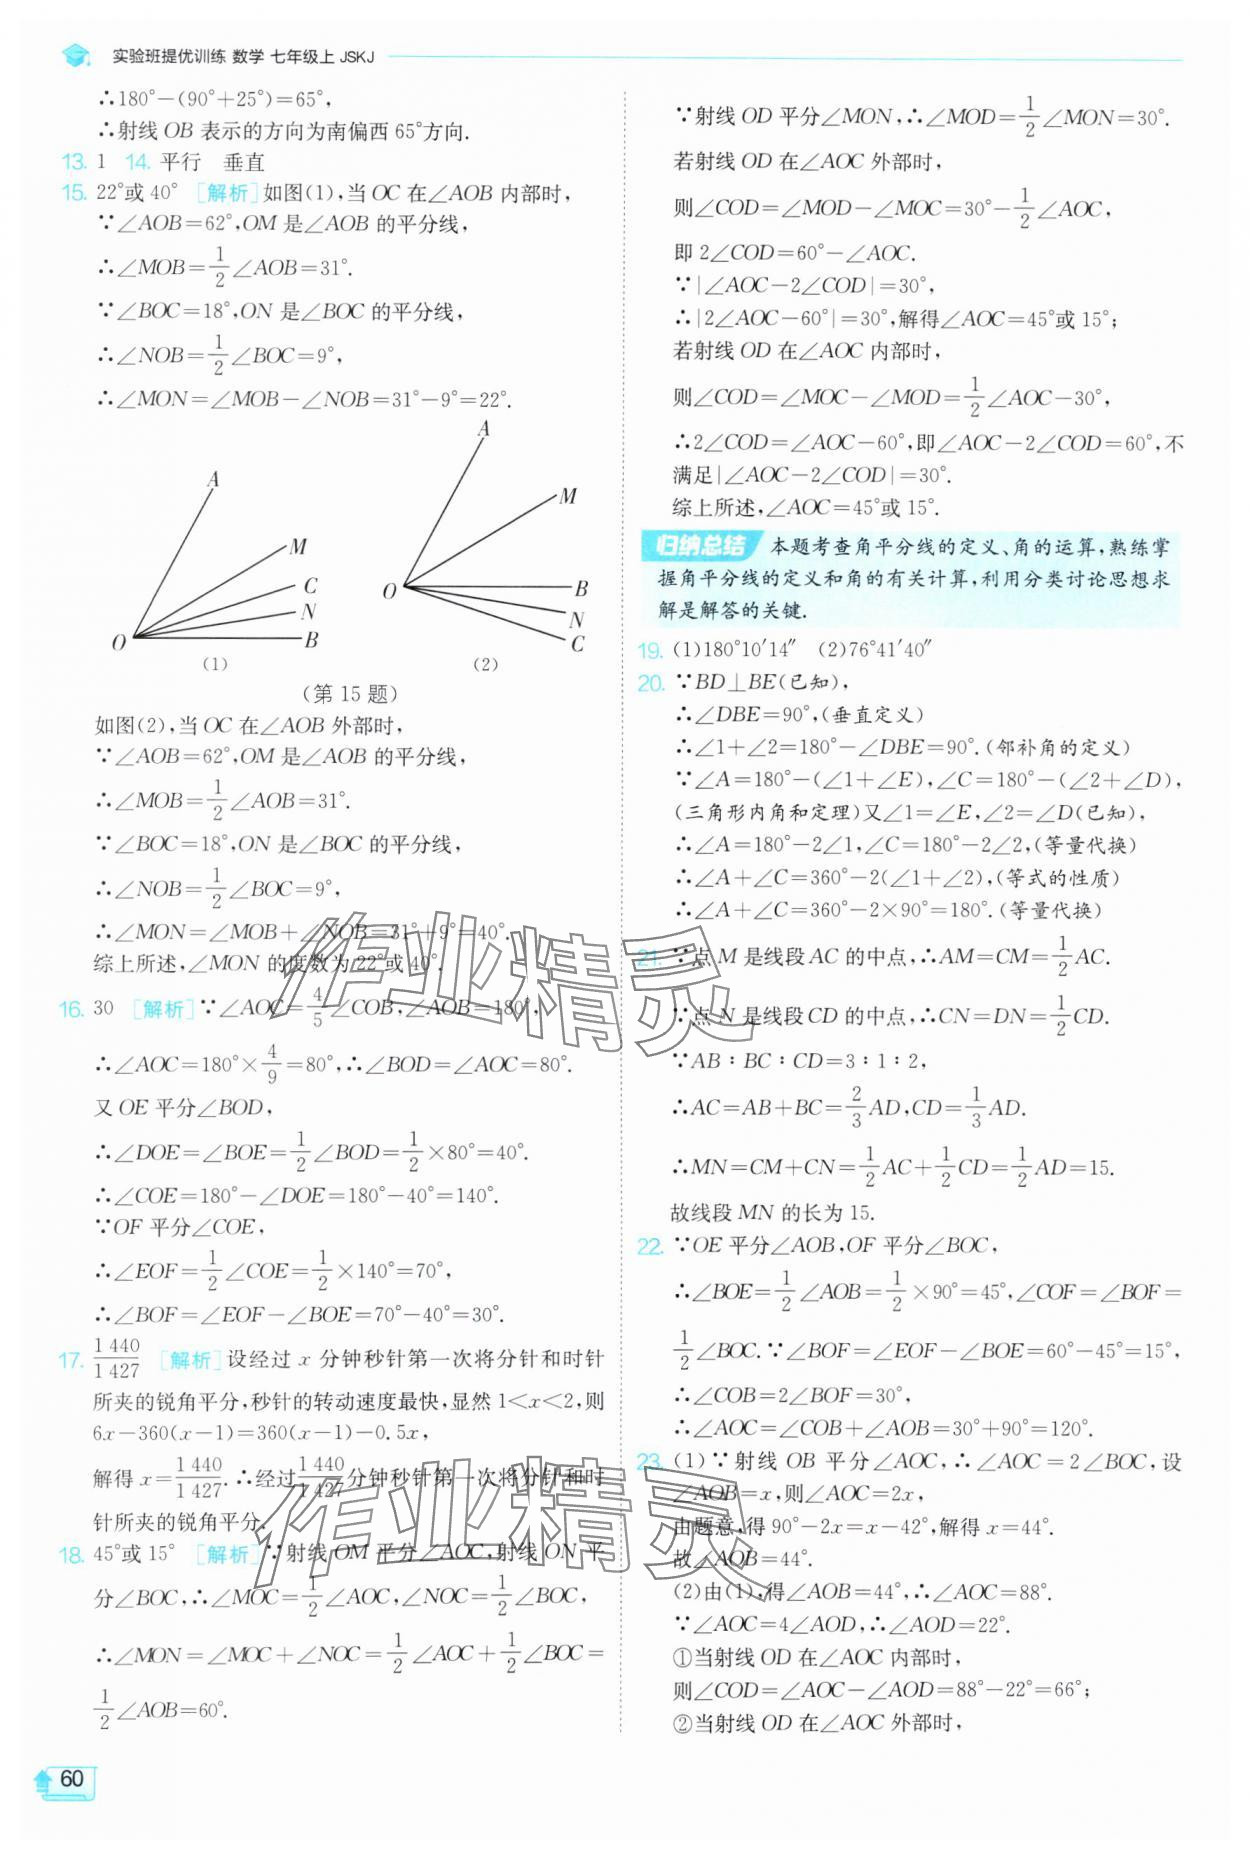 实验班提优训练 数学 七年级上 JSKJ
∴180°－(90°＋25°)＝65°,
∴射线 OB 表示的方向为南偏西 65°方向.
13. 1 14. 平行 垂直
15. 22°或 40° [解析]如图(1),当 OC 在∠AOB 内部时,
∵∠AOB＝62°,OM 是∠AOB 的平分线,
∴∠MOB＝1/2∠AOB＝31°.
∵∠BOC＝18°,ON 是∠BOC 的平分线,
∴∠NOB＝1/2∠BOC＝9°,
∴∠MON＝∠MOB－∠NOB＝31°－9°＝22°.
A
M
C
N
B
O
(1)
A
M
B
N
C
O
(2)
(第 15 题)
如图(2),当 OC 在∠AOB 外部时,
∵∠AOB＝62°,OM 是∠AOB 的平分线,
∴∠MOB＝1/2∠AOB＝31°.
∵∠BOC＝18°,ON 是∠BOC 的平分线,
∴∠NOB＝1/2∠BOC＝9°,
∴∠MON＝∠MOB＋∠NOB＝31°＋9°＝40°.
综上所述,∠MON 的度数为 22°或 40°.
16. 30 [解析]∵∠AOC＝4/5∠COB,∠AOB＝180°,
∴∠AOC＝180°×4/9＝80°,∴∠BOD＝∠AOC＝80°.
又 OE 平分∠BOD,
∴∠DOE＝∠BOE＝1/2∠BOD＝1/2×80°＝40°.
∴∠COE＝180°－∠DOE＝180°－40°＝140°.
∵OF 平分∠COE,
∴∠EOF＝1/2∠COE＝1/2×140°＝70°,
∴∠BOF＝∠EOF－∠BOE＝70°－40°＝30°.
17. 1 440/1 427 [解析]设经过 x 分钟秒针第一次将分针和时针
所夹的锐角平分,秒针的转动速度最快,显然 1＜x＜2,则
6x－360(x－1)＝360(x－1)－0.5x,
解得 x＝1 440/1 427.∴经过1 440/1 427分钟秒针第一次将分针和时
针所夹的锐角平分.
18. 45°或 15° [解析]∵射线 OM 平分∠AOC,射线 ON 平
分∠BOC,∴∠MOC＝1/2∠AOC,∠NOC＝1/2∠BOC,
∴∠MON＝∠MOC＋∠NOC＝1/2∠AOC＋1/2∠BOC＝
1/2∠AOB＝60°.
∵射线 OD 平分∠MON,∴∠MOD＝1/2∠MON＝30°.
若射线 OD 在∠AOC 外部时,
则∠COD＝∠MOD－∠MOC＝30°－1/2∠AOC,
即 2∠COD＝60°－∠AOC.
∵|∠AOC－2∠COD|＝30°,
∴|2∠AOC－60°|＝30°,解得∠AOC＝45°或 15°;
若射线 OD 在∠AOC 内部时,
则∠COD＝∠MOC－∠MOD＝1/2∠AOC－30°,
∴2∠COD＝∠AOC－60°,即∠AOC－2∠COD＝60°,不
满足|∠AOC－2∠COD|＝30°.
综上所述,∠AOC＝45°或 15°.
归纳总结 本题考查角平分线的定义、角的运算,熟练掌
握角平分线的定义和角的有关计算,利用分类讨论思想求
解是解答的关键.
19. (1)180°10′14″ (2)76°41′40″
20. ∵BD⊥BE(已知),
∴∠DBE＝90°,(垂直定义)
∴∠1＋∠2＝180°－∠DBE＝90°.(邻补角的定义)
∵∠A＝180°－(∠1＋∠E),∠C＝180°－(∠2＋∠D),
(三角形内角和定理)又∠1＝∠E,∠2＝∠D(已知),
∴∠A＝180°－2∠1,∠C＝180°－2∠2,(等量代换)
∴∠A＋∠C＝360°－2(∠1＋∠2),(等式的性质)
∴∠A＋∠C＝360°－2×90°＝180°.(等量代换)
21. ∵点 M 是线段 AC 的中点,∴AM＝CM＝1/2AC.
∵点 N 是线段 CD 的中点,∴CN＝DN＝1/2CD.
∵AB∶BC∶CD＝3∶1∶2,
∴AC＝AB＋BC＝2/3AD,CD＝1/3AD.
∴MN＝CM＋CN＝1/2AC＋1/2CD＝1/2AD＝15.
故线段 MN 的长为 15.
22. ∵OE 平分∠AOB,OF 平分∠BOC,
∴∠BOE＝1/2∠AOB＝1/2×90°＝45°,∠COF＝∠BOF＝
1/2∠BOC.∵∠BOF＝∠EOF－∠BOE＝60°－45°＝15°,
∴∠COB＝2∠BOF＝30°,
∴∠AOC＝∠COB＋∠AOB＝30°＋90°＝120°.
23. (1)∵射线 OB 平分∠AOC,∴∠AOC＝2∠BOC,设
∠AOB＝x,则∠AOC＝2x,
由题意,得 90°－2x＝x－42°,解得 x＝44°.
故∠AOB＝44°.
(2)由(1),得∠AOB＝44°,∴∠AOC＝88°.
∵∠AOC＝4∠AOD,∴∠AOD＝22°.
①当射线 OD 在∠AOC 内部时,
则∠COD＝∠AOC－∠AOD＝88°－22°＝66°;
②当射线 OD 在∠AOC 外部时,
作业精灵
作业精灵
60